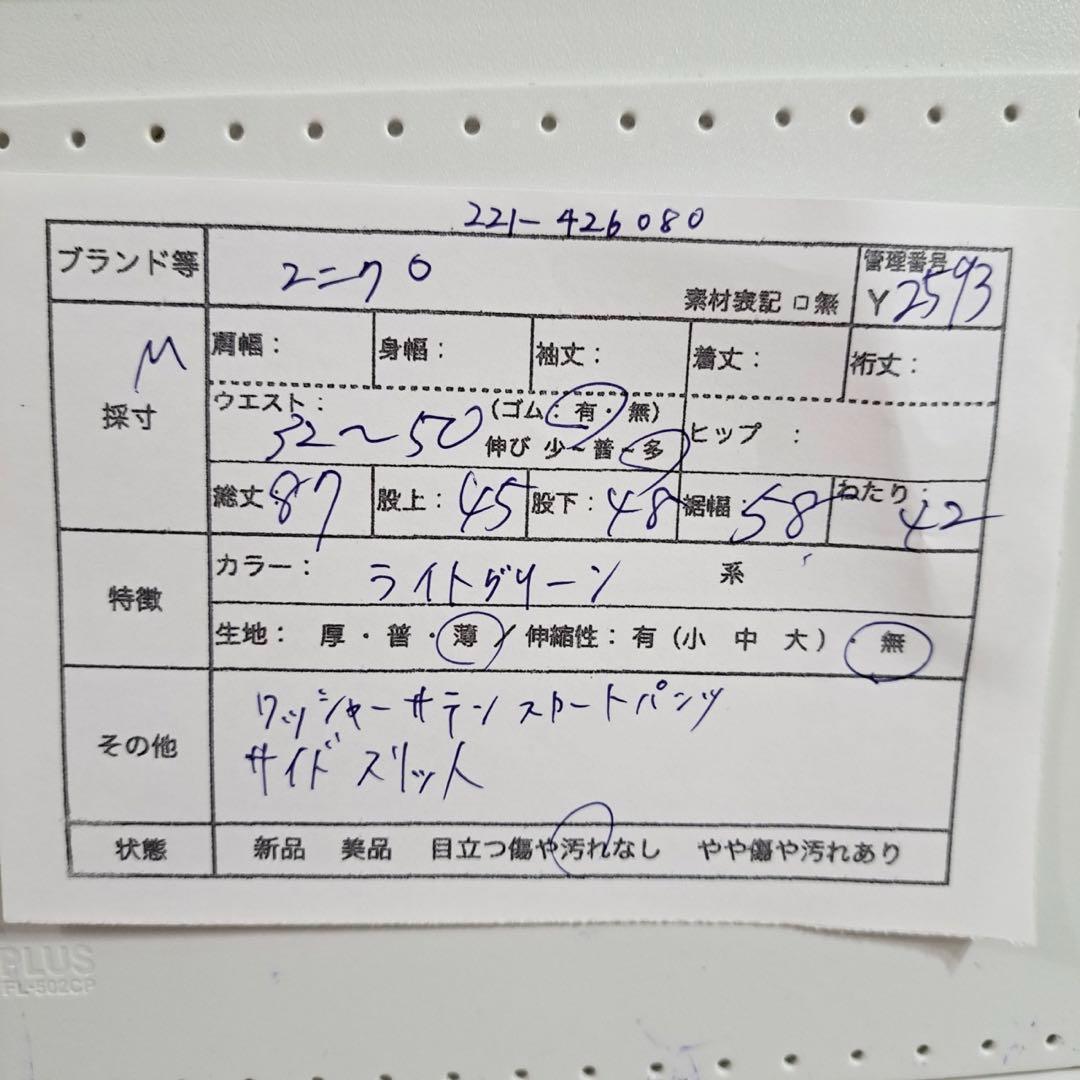 221-426080
ブランド等 ユニクロ 素材表記 □無 管理番号 Y2593
採寸 M
肩幅： 身幅： 袖丈： 着丈： 裄丈：
ウエスト： 32～50 (ゴム：有・無) 伸び 少－普－多 ヒップ ：
総丈 87 股上：45 股下：48 裾幅：58 わたり：42
特徴 カラー： ライトグリーン 系
生地： 厚・普・薄 / 伸縮性：有 (小 中 大)・無
その他 ワッシャーサテンスカートパンツ
サイドスリット
状態 新品 美品 目立つ傷や汚れなし やや傷や汚れあり
PLUS
FL-502CP